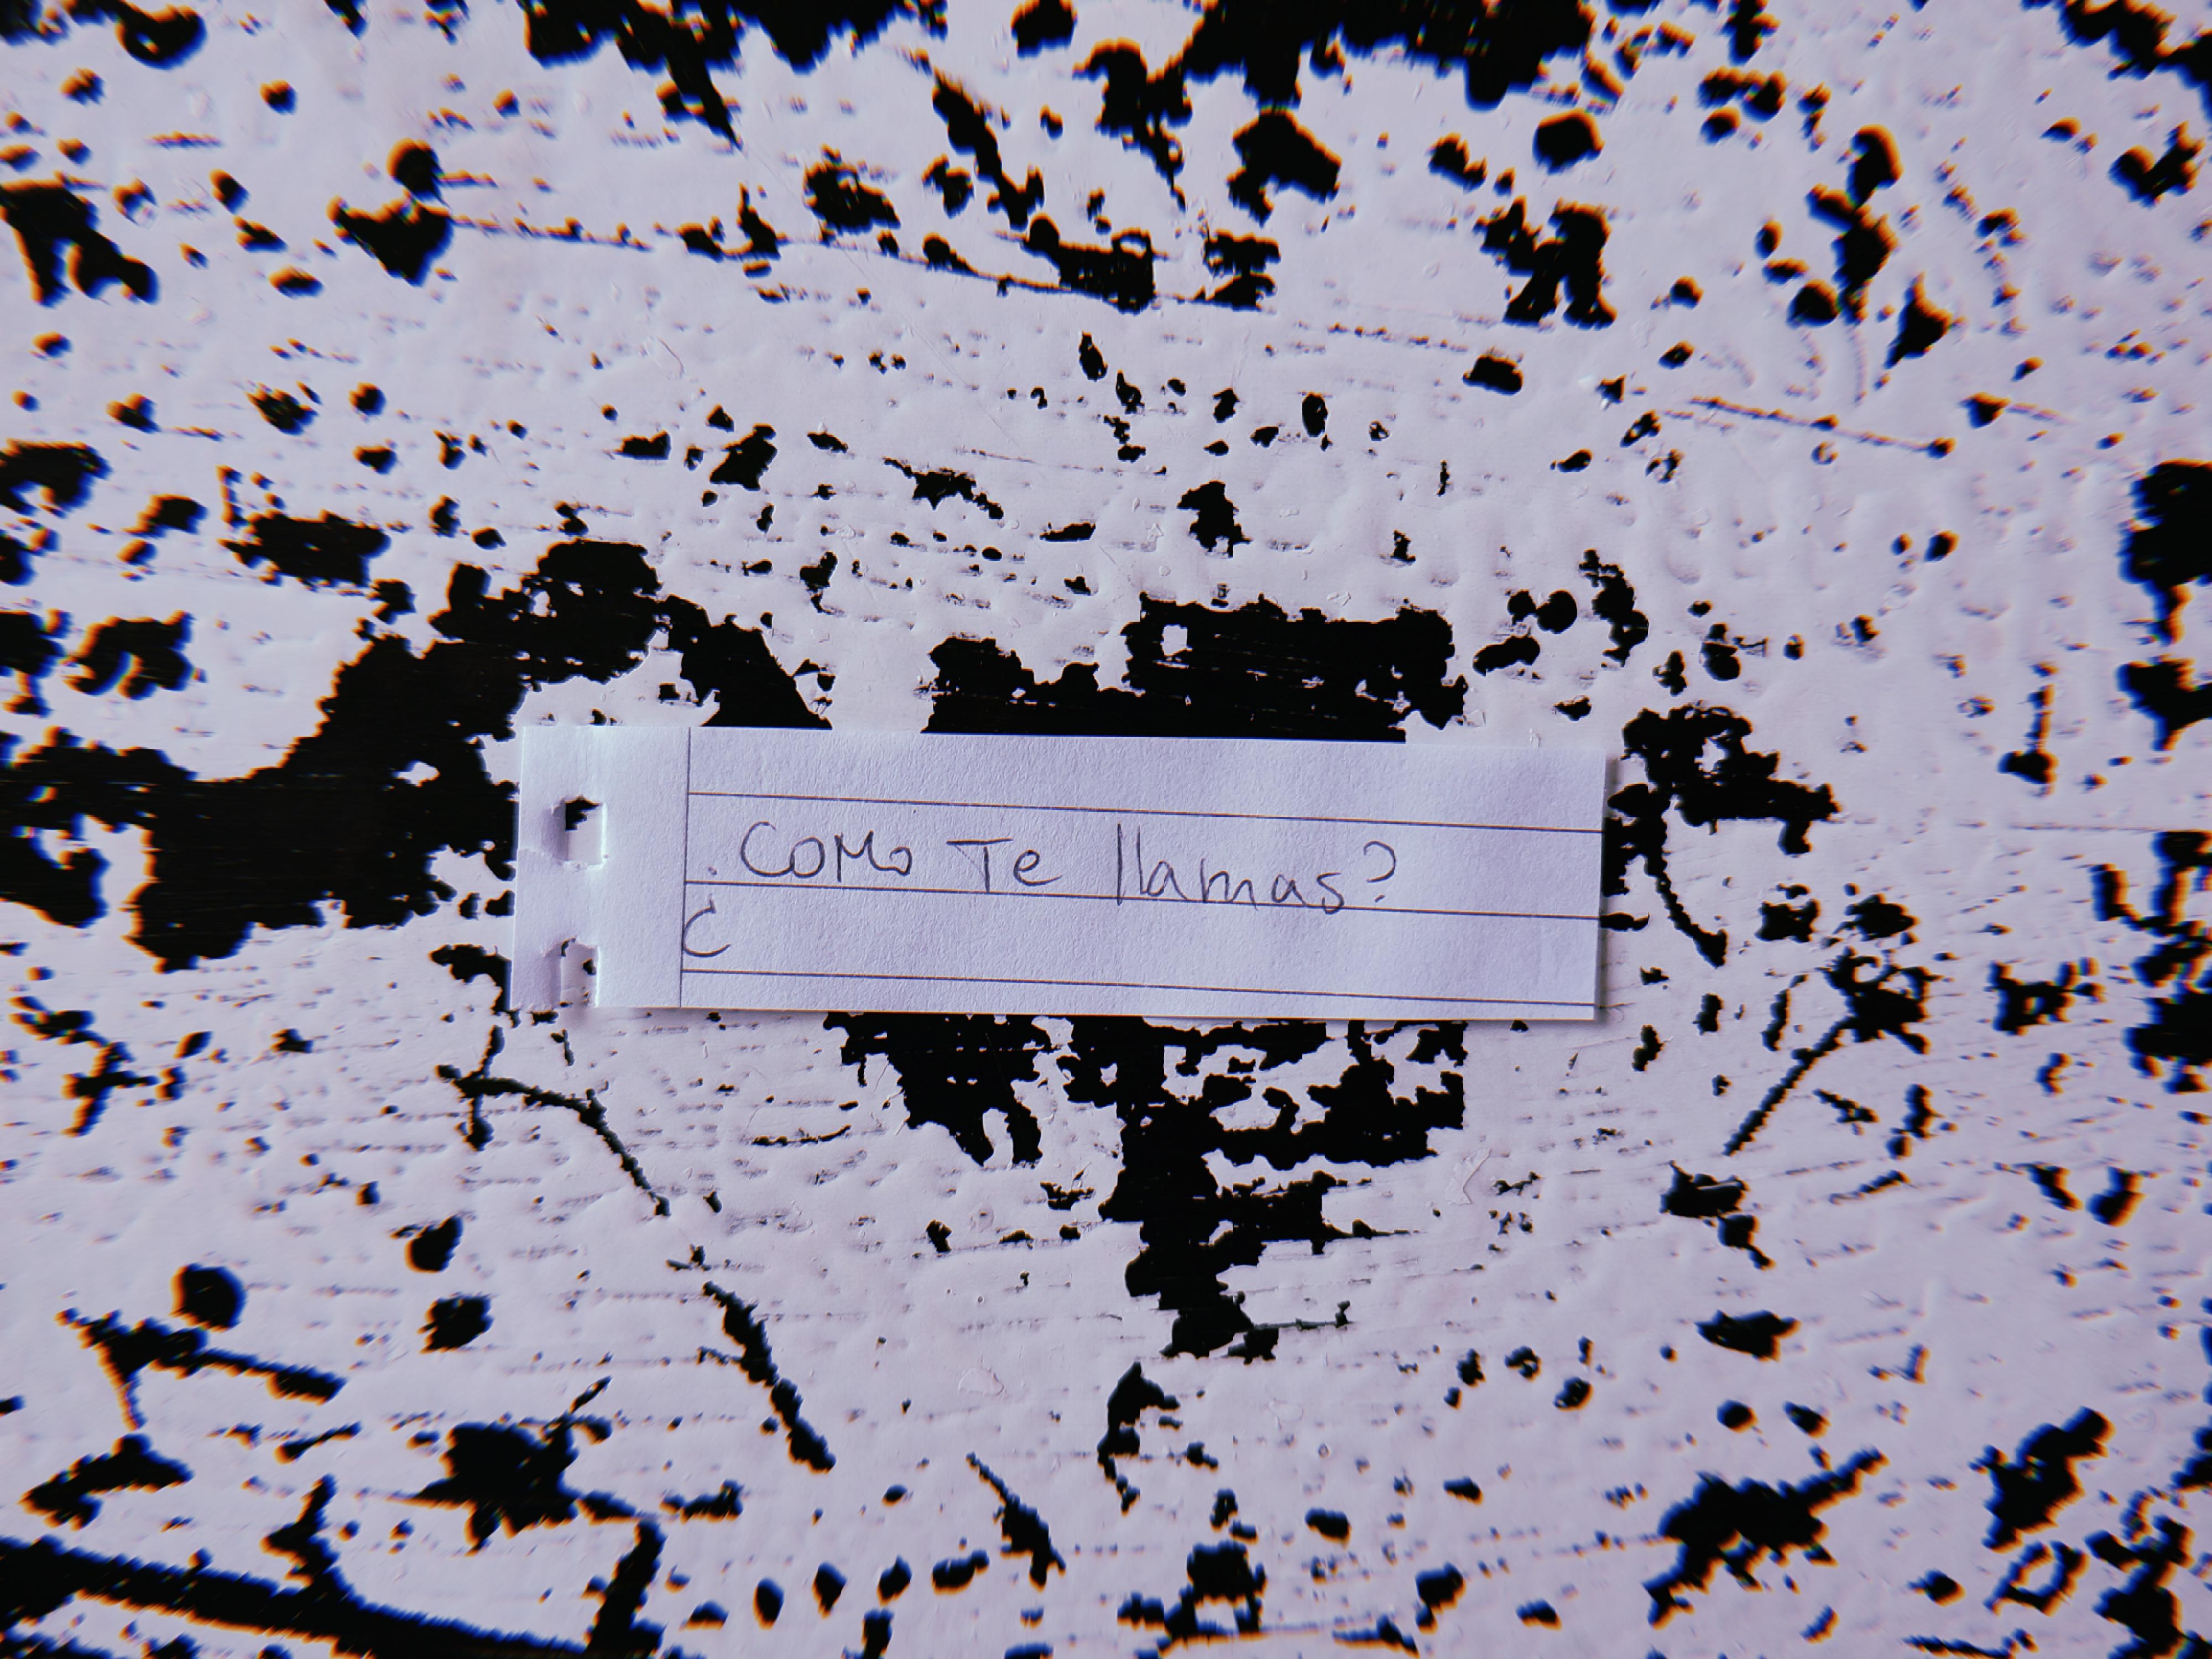 . Como Te llamas?
¿